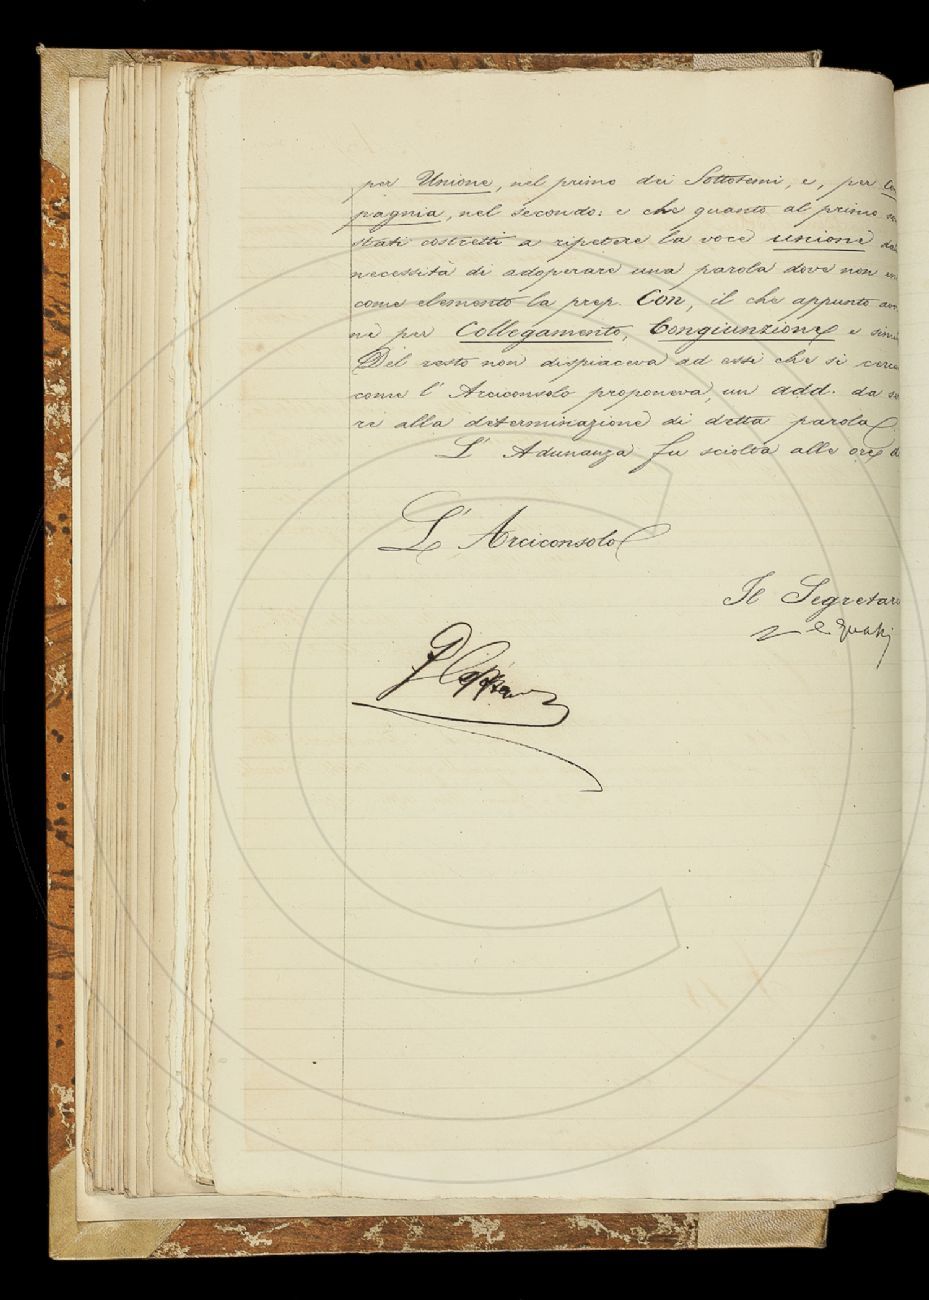 per Unione, nel primo dei Sottotemi, e, per Co
pagnia, nel secondo: e che quanto al primo
stati costretti a ripetere la voce unione
necessità di adoperare una parola dove non
come elemento la prep. Con, il che appunto
ne per Collegamento, Congiunzione e simi
Del resto non dispiaceva ad essi che si
come l' Arciconsolo proponeva, un add. da
re alla determinazione di detta parola
L' Adunanza fu sciolta alle ore
L' Arciconsolo
Il Segretar